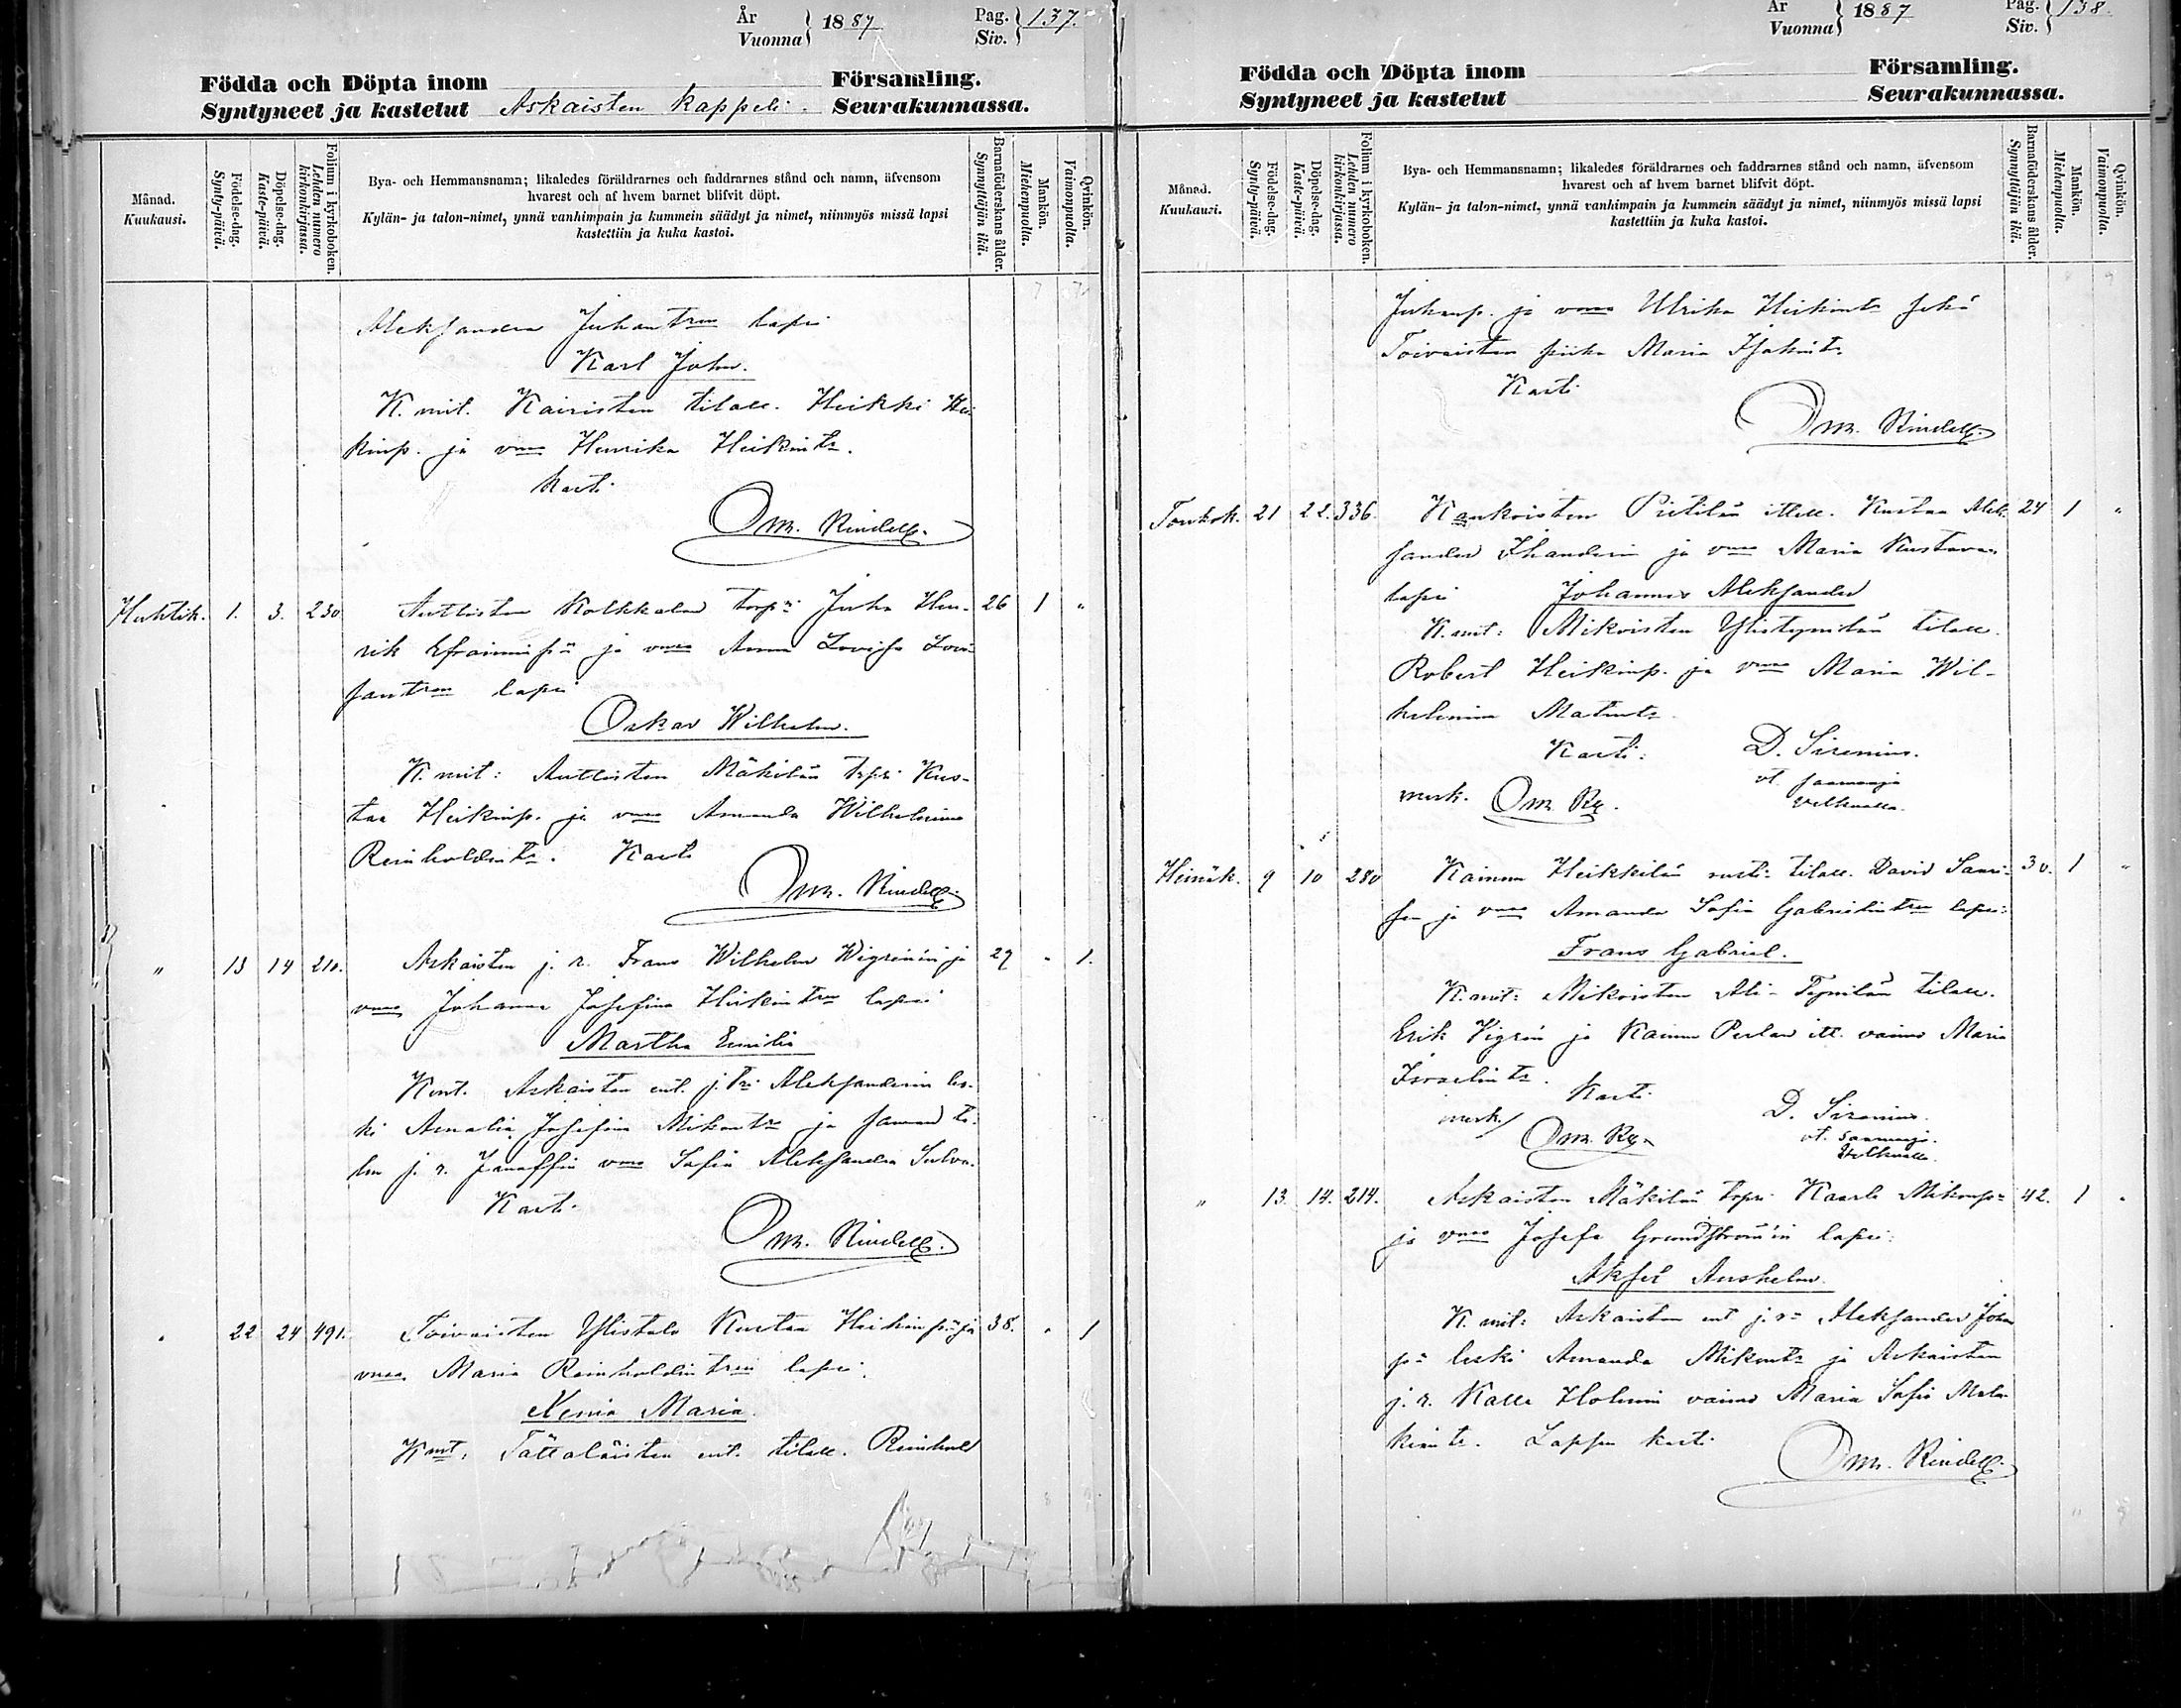 År
Vuonna } 1887.
Pag.
Siv. } 137.
Födda och Döpta inom Församling.
Syntyneet ja kastetut Askaisten kappeli. Seurakunnassa.
Månad.
Kuukausi.
Födelse-dag.
Synty-päivä.
Döpelse-dag.
Kaste-päivä.
Folium i kyrkoboken.
Lehden numero kirkonkirjassa.
Bya- och Hemmansnamn; likaledes föräldrarnes och faddrarnes stånd och namn, äfvensom
hvarest och af hvem barnet blifvit döpt.
Kylän- ja talon-nimet, ynnä vanhimpain ja kummein säädyt ja nimet, niinmyös missä lapsi
kastettiin ja kuka kastoi.
Barnaföderskans ålder.
Synnyttäjän ikä.
Mankön.
Miehenpuolta.
Qvinkön.
Vaimonpuolta.
Aleksandra Juhantren lapsi
Karl John.
K. mit. Kairisten tilall. Heikki Hei-
kinp. ja vmo Henrika Heikintr.
Kasti.
Om. Rindell.
Huhtik. 1. 3. 230 Auttisten Kolkkalan torp: Juha Hen- 26 1 "
rik Efraiminp:n ja vmo Anna Lovisa Lovi-
santren lapsi
Oskar Wilhelm.
K. mit: Auttisten Mäkilän torp: Kus-
taa Heikinp. ja vmo Amanda Wilhelmina
Reinholdintr. Kasti
Om. Rindell.
" 13 14 210. Askaisten j. r. Frans Wilhelm Wigrénin ja 29 " 1.
vmo Johanna Josefina Heikintren lapsi
Martha Emilia
Kmt. Askaisten ent. j. r: Aleksanderin les-
ki Amalia Josefina Mikontr ja
j. r. vmo Sofia Aleksandra
Kasti.
Om. Rindell.
" 22 24 491. Toivaisten Ylistalo Kustaa Heikinp:n ja 38. " 1
vmo Maria Reinholdintren lapsi.
Xenia Maria.
Kmt. Tättäläisten ent. tilall. Reinhold
År
Vuonna } 1887
Pag.
Siv. } 138.
Födda och Döpta inom Församling.
Syntyneet ja kastetut Seurakunnassa.
Månad.
Kuukausi.
Födelse-dag.
Synty-päivä.
Döpelse-dag.
Kaste-päivä.
Folium i kyrkoboken.
Lehden numero kirkonkirjassa.
Bya- och Hemmansnamn; likaledes föräldrarnes och faddrarnes stånd och namn, äfvensom
hvarest och af hvem barnet blifvit döpt.
Kylän- ja talon-nimet, ynnä vanhimpain ja kummein säädyt ja nimet, niinmyös missä lapsi
kastettiin ja kuka kastoi.
Barnaföderskans ålder.
Synnyttäjän ikä.
Mankön.
Miehenpuolta.
Qvinkön.
Vaimonpuolta.
Juhanp. ja vmo Ulrika Heikintr sekä
Toivaisten piika Maria Isakintr.
Kasti
Om. Rindell.
Toukok. 21 22. 336. Kankoisten Pietilän itll. Kustaa Alek- 24 1 "
sander ja vmo Maria Kustavan
lapsi Johannes Aleksander
K. mit: Mikoisten Ylistynilän tilall.
Robert Heikinp. ja vmo Maria Wil-
helmina Matintr.
Kasti: D. Sirenius.
vt. saarnaaja
Velkualla.
merk. Om. Rll.
Heinäk. 9 10 280 Kaimin Heikkilän rust: tilall. David Sauri- 30. 1 "
sen ja vmo Amanda Sofia Gabrielintren lapsi:
Frans Gabriel.
K. mit: Mikoisten Ali-Tynilän tilall.
Erik Vigrén ja Kaimin Perlan itl. vaimo Maria
Israelintr.
Kasti.
merk. Om. Rll. D. Sirenius.
vt. saarnaaja.
Velkualla.
" 13. 14. 214. Askaisten Mäkilän torp. Kaarle Mikonp: 42. 1 "
ja vmo Josefa Grundströmin lapsi:
Aksel Anshelm.
K. mit: Askaisten ent j. r: Aleksander Johan
p:n leski Amanda Mikontr ja Askaisten
j. r. Kalle Holmin vaimo Maria Sofia Mala-
kiintr. Lapsen kasti
Om. Rindell.